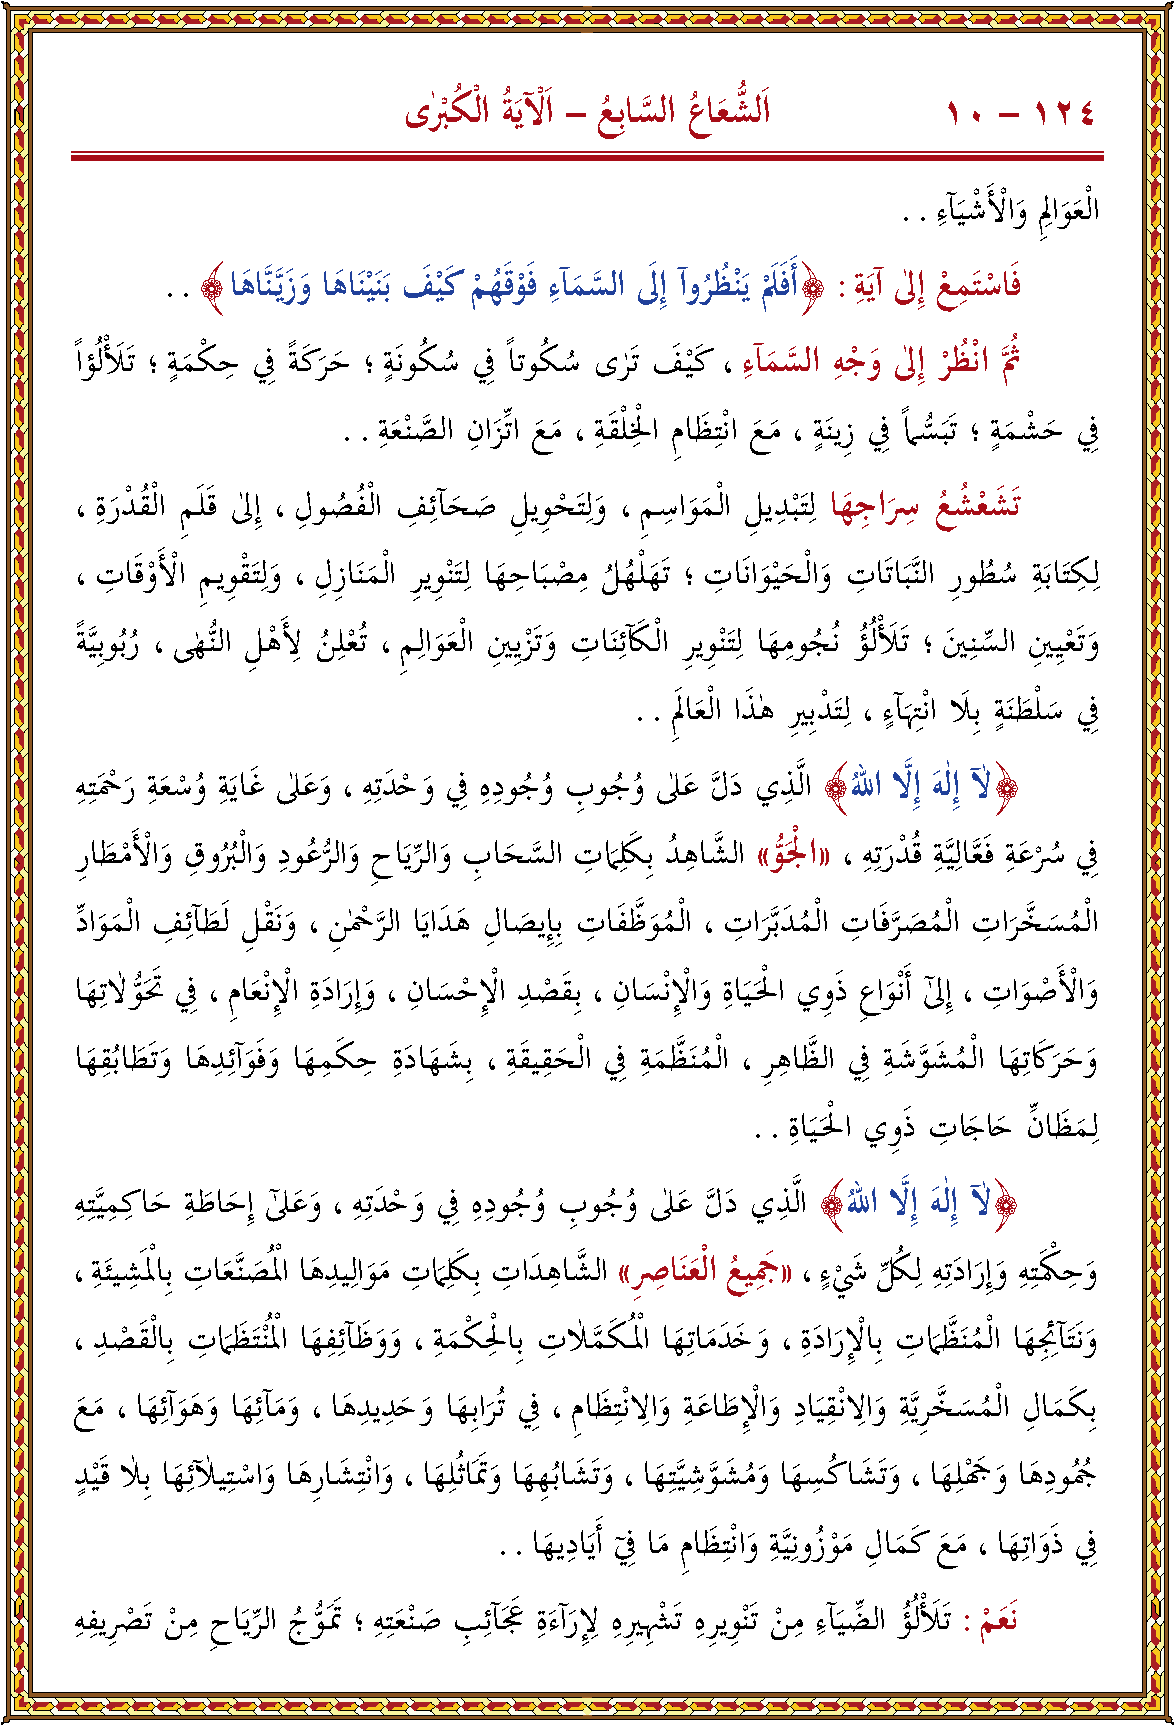 ١٢٤ – ١٠ اَلشُّعَاعُ السَّابِعُ – اَلْآيَةُ الْكُبْرٰى
الْعَوَالِمِ وَالْأَشْيَآءِ . .
فَاسْتَمِعْ إِلٰى آيَةِ : ﴿أَفَلَمْ يَنْظُرُوآ إِلَى السَّمَآءِ فَوْقَهُمْ كَيْفَ بَنَيْنَاهَا وَزَيَّنَّاهَا﴾ . .
ثُمَّ انْظُرْ إِلٰى وَجْهِ السَّمَآءِ ، كَيْفَ تَرٰى سُكُوتاً فِي سُكُونَةٍ ؛ حَرَكَةً فِي حِكْمَةٍ ؛ تَلَأْلُؤاً
فِي حَشْمَةٍ ؛ تَبَسُّماً فِي زِينَةٍ ، مَعَ انْتِظَامِ الْخِلْقَةِ ، مَعَ اتِّزَانِ الصَّنْعَةِ . .
تَشَعْشُعُ سِرَاجِهَا لِتَبْدِيلِ الْمَوَاسِمِ ، وَلِتَحْوِيلِ صَحَآئِفِ الْفُصُولِ ، إِلٰى قَلَمِ الْقُدْرَةِ ،
لِكِتَابَةِ سُطُورِ النَّبَاتَاتِ وَالْحَيْوَانَاتِ ؛ تَهَلْهُلُ مِصْبَاحِهَا لِتَنْوِيرِ الْمَنَازِلِ ، وَلِتَقْوِيمِ الْأَوْقَاتِ ،
وَتَعْيِينِ السِّنِينَ ؛ تَلَأْلُؤُ نُجُومِهَا لِتَنْوِيرِ الْكَآئِنَاتِ وَتَزْيِينِ الْعَوَالِمِ ، تُعْلِنُ لِأَهْلِ النُّهٰى ، رُبُوبِيَّةً
فِي سَلْطَنَةٍ بِلَا انْتِهَآءٍ ، لِتَدْبِيرِ هٰذَا الْعَالَمِ . .
﴿لَآ إِلٰهَ إِلَّا اللهُ﴾ الَّذِي دَلَّ عَلىٰ وُجُوبِ وُجُودِهِ فِي وَحْدَتِهِ ، وَعَلىٰ غَايَةِ وُسْعَةِ رَحْمَتِهِ
فِي سُرْعَةِ فَعَّالِيَّةِ قُدْرَتِهِ ، «الْجَوُّ» الشَّاهِدُ بِكَلِمَاتِ السَّحَابِ وَالرِّيَاحِ وَالرُّعُودِ وَالْبُرُوقِ وَالْأَمْطَارِ
الْمُسَخَّرَاتِ الْمُصَرَّفَاتِ الْمُدَبَّرَاتِ ، الْمُوَظَّفَاتِ بِإِيصَالِ هَدَايَا الرَّحْمٰنِ ، وَنَقْلِ لَطَآئِفِ الْمَوَادِّ
وَالْأَصْوَاتِ ، إِلىٰٓ أَنْوَاعِ ذَوِي الْحَيَاةِ وَالْإِنْسَانِ ، بِقَصْدِ الْإِحْسَانِ ، وَإِرَادَةِ الْإِنْعَامِ ، فِي تَحَوُّلَاتِهَا
وَحَرَكَاتِهَا الْمُشَوَّشَةِ فِي الظَّاهِرِ ، الْمُنَظَّمَةِ فِي الْحَقِيقَةِ ، بِشَهَادَةِ حِكَمِهَا وَفَوَآئِدِهَا وَتَطَابُقِهَا
لِمَظَانِّ حَاجَاتِ ذَوِي الْحَيَاةِ . .
﴿لَآ إِلٰهَ إِلَّا اللهُ﴾ الَّذِي دَلَّ عَلىٰ وُجُوبِ وُجُودِهِ فِي وَحْدَتِهِ ، وَعَلىٰٓ إِحَاطَةِ حَاكِمِيَّتِهِ
وَحِكْمَتِهِ وَإِرَادَتِهِ لِكُلِّ شَيْءٍ ، «جَمِيعُ الْعَنَاصِرِ» الشَّاهِدَاتِ بِكَلِمَاتِ مَوَالِيدِهَا الْمُصَنَّعَاتِ بِالْمَشِيئَةِ ،
وَنَتَآئِجِهَا الْمُنَظَّمَاتِ بِالْإِرَادَةِ ، وَخَدَمَاتِهَا الْمُكَمَّلَاتِ بِالْحِكْمَةِ ، وَوَظَآئِفِهَا الْمُنْتَظَمَاتِ بِالْقَصْدِ ،
بِكَمَالِ الْمُسَخَّرِيَّةِ وَالِانْقِيَادِ وَالْإِطَاعَةِ وَالِانْتِظَامِ ، فِي تُرَابِهَا وَحَدِيدِهَا ، وَمَآئِهَا وَهَوَآئِهَا ، مَعَ
جُمُودِهَا وَجَهْلِهَا ، وَتَشَاكُسِهَا وَمُشَوَّشِيَّتِهَا ، وَتَشَابُهِهَا وَتَمَاثُلِهَا ، وَانْتِشَارِهَا وَاسْتِيلَآئِهَا بِلَا قَيْدٍ
فِي ذَوَاتِهَا ، مَعَ كَمَالِ مَوْزُونِيَّةِ وَانْتِظَامِ مَا فِيٓ أَيَادِيهَا . .
نَعَمْ : تَلَأْلُؤُ الضِّيَآءِ مِنْ تَنْوِيرِهِ تَشْهِيرِهِ لِإِرَآءَةِ عَجَآئِبِ صَنْعَتِهِ ؛ تَمَوُّجُ الرِّيَاحِ مِنْ تَصْرِيفِهِ